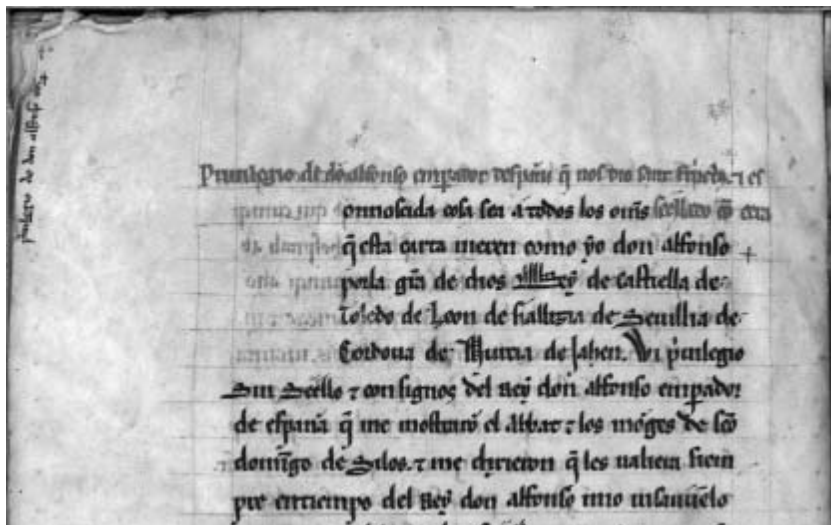 Priuilegio de dõ alfonso emperador despaña q̃ nos dio sant frurdo. ⁊ es
seellado cõ cera
onnoscida cosa sea a todos los om̃s
q̃ esta carta uieren como yo don alfonso
por la gr̃a de dios Rey de castiella de
Toledo de Leon de Gallizia de Seuillia de
Cordoua de Murcia de Jahen. Vi p̃uilegio
Sin Seello ⁊ con signos del Rey don alfonso emp̃ador
de españa q̃ me mostraron el Abbat ⁊ los mõges de sc̃o
domĩgo de Silos. ⁊ me dixieron q̃ les ualiera siem
pre en tiempo del Rey don alfonso mio uisauuelo
p̃uilegio de don alfonso